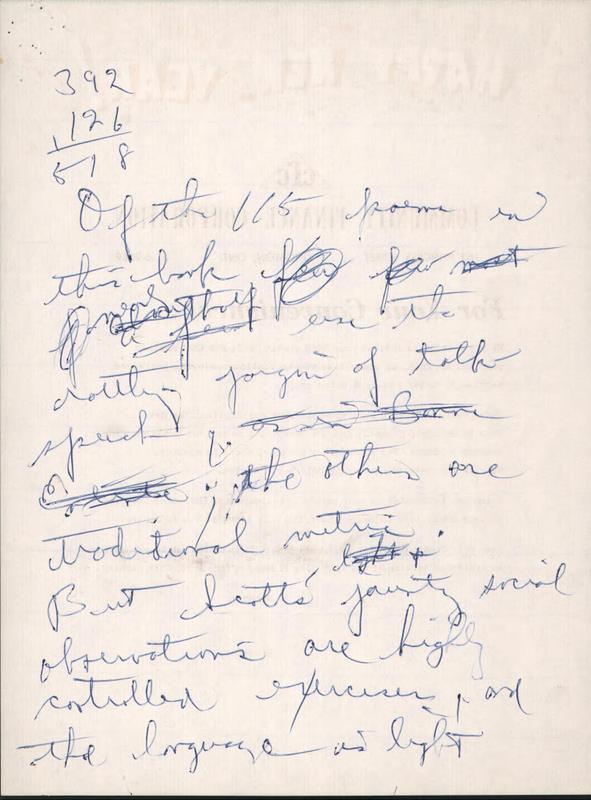 392
126
518
Of the 115 poems in
this book
nearly half use the
rattling jargon of talk
speech
; the others are
traditional metric
light &
But Scott's jaunty social
observations are highly
controlled exercises, and
the language is light